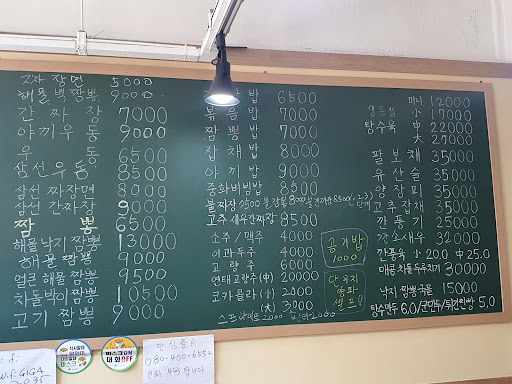 짜장면 5000
해물백짬뽕 9000
간짜장 7000
야끼우동 9000
우동 6500
삼선우동 8500
삼선짜장면 8000
삼선간짜장 9000
짬뽕 6500
해물낙지짬뽕 13000
해물짬뽕 9000
얼큰해물짬뽕 9500
차돌박이짬뽕 10500
고기짬뽕 9000
밥 6500
볶음밥 7000
짬뽕밥 7000
잡채밥 8000
야끼밥 9000
중화비빔밥 8500
불짜장 9500
고추새우간짜장 8500
소주/맥주 4000
이과두주 4000
고량주 6000
연태고량(中) 20000
코카콜라(小) 2000
(大) 3000
스프라이트 2000
공기밥
1000
단무지
양파
셀프
미니 12000
小 17000
탕수육 中 22000
大 27000
팔보채 35000
유산슬 35000
양장피 35000
고추잡채 35000
깐풍기 25000
깐쇼새우 32000
깐풍육 小 20.0 中 25.0
매콤차돌두루치기 30000
낙지짬뽕국물 15000
탕수만두 6.0/군만두/튀김찐빵 5.0
마스크
마스크 ON
대화 OFF
안심콜
080-400-6552
전화 부탁합니다
WiFi. GIGA